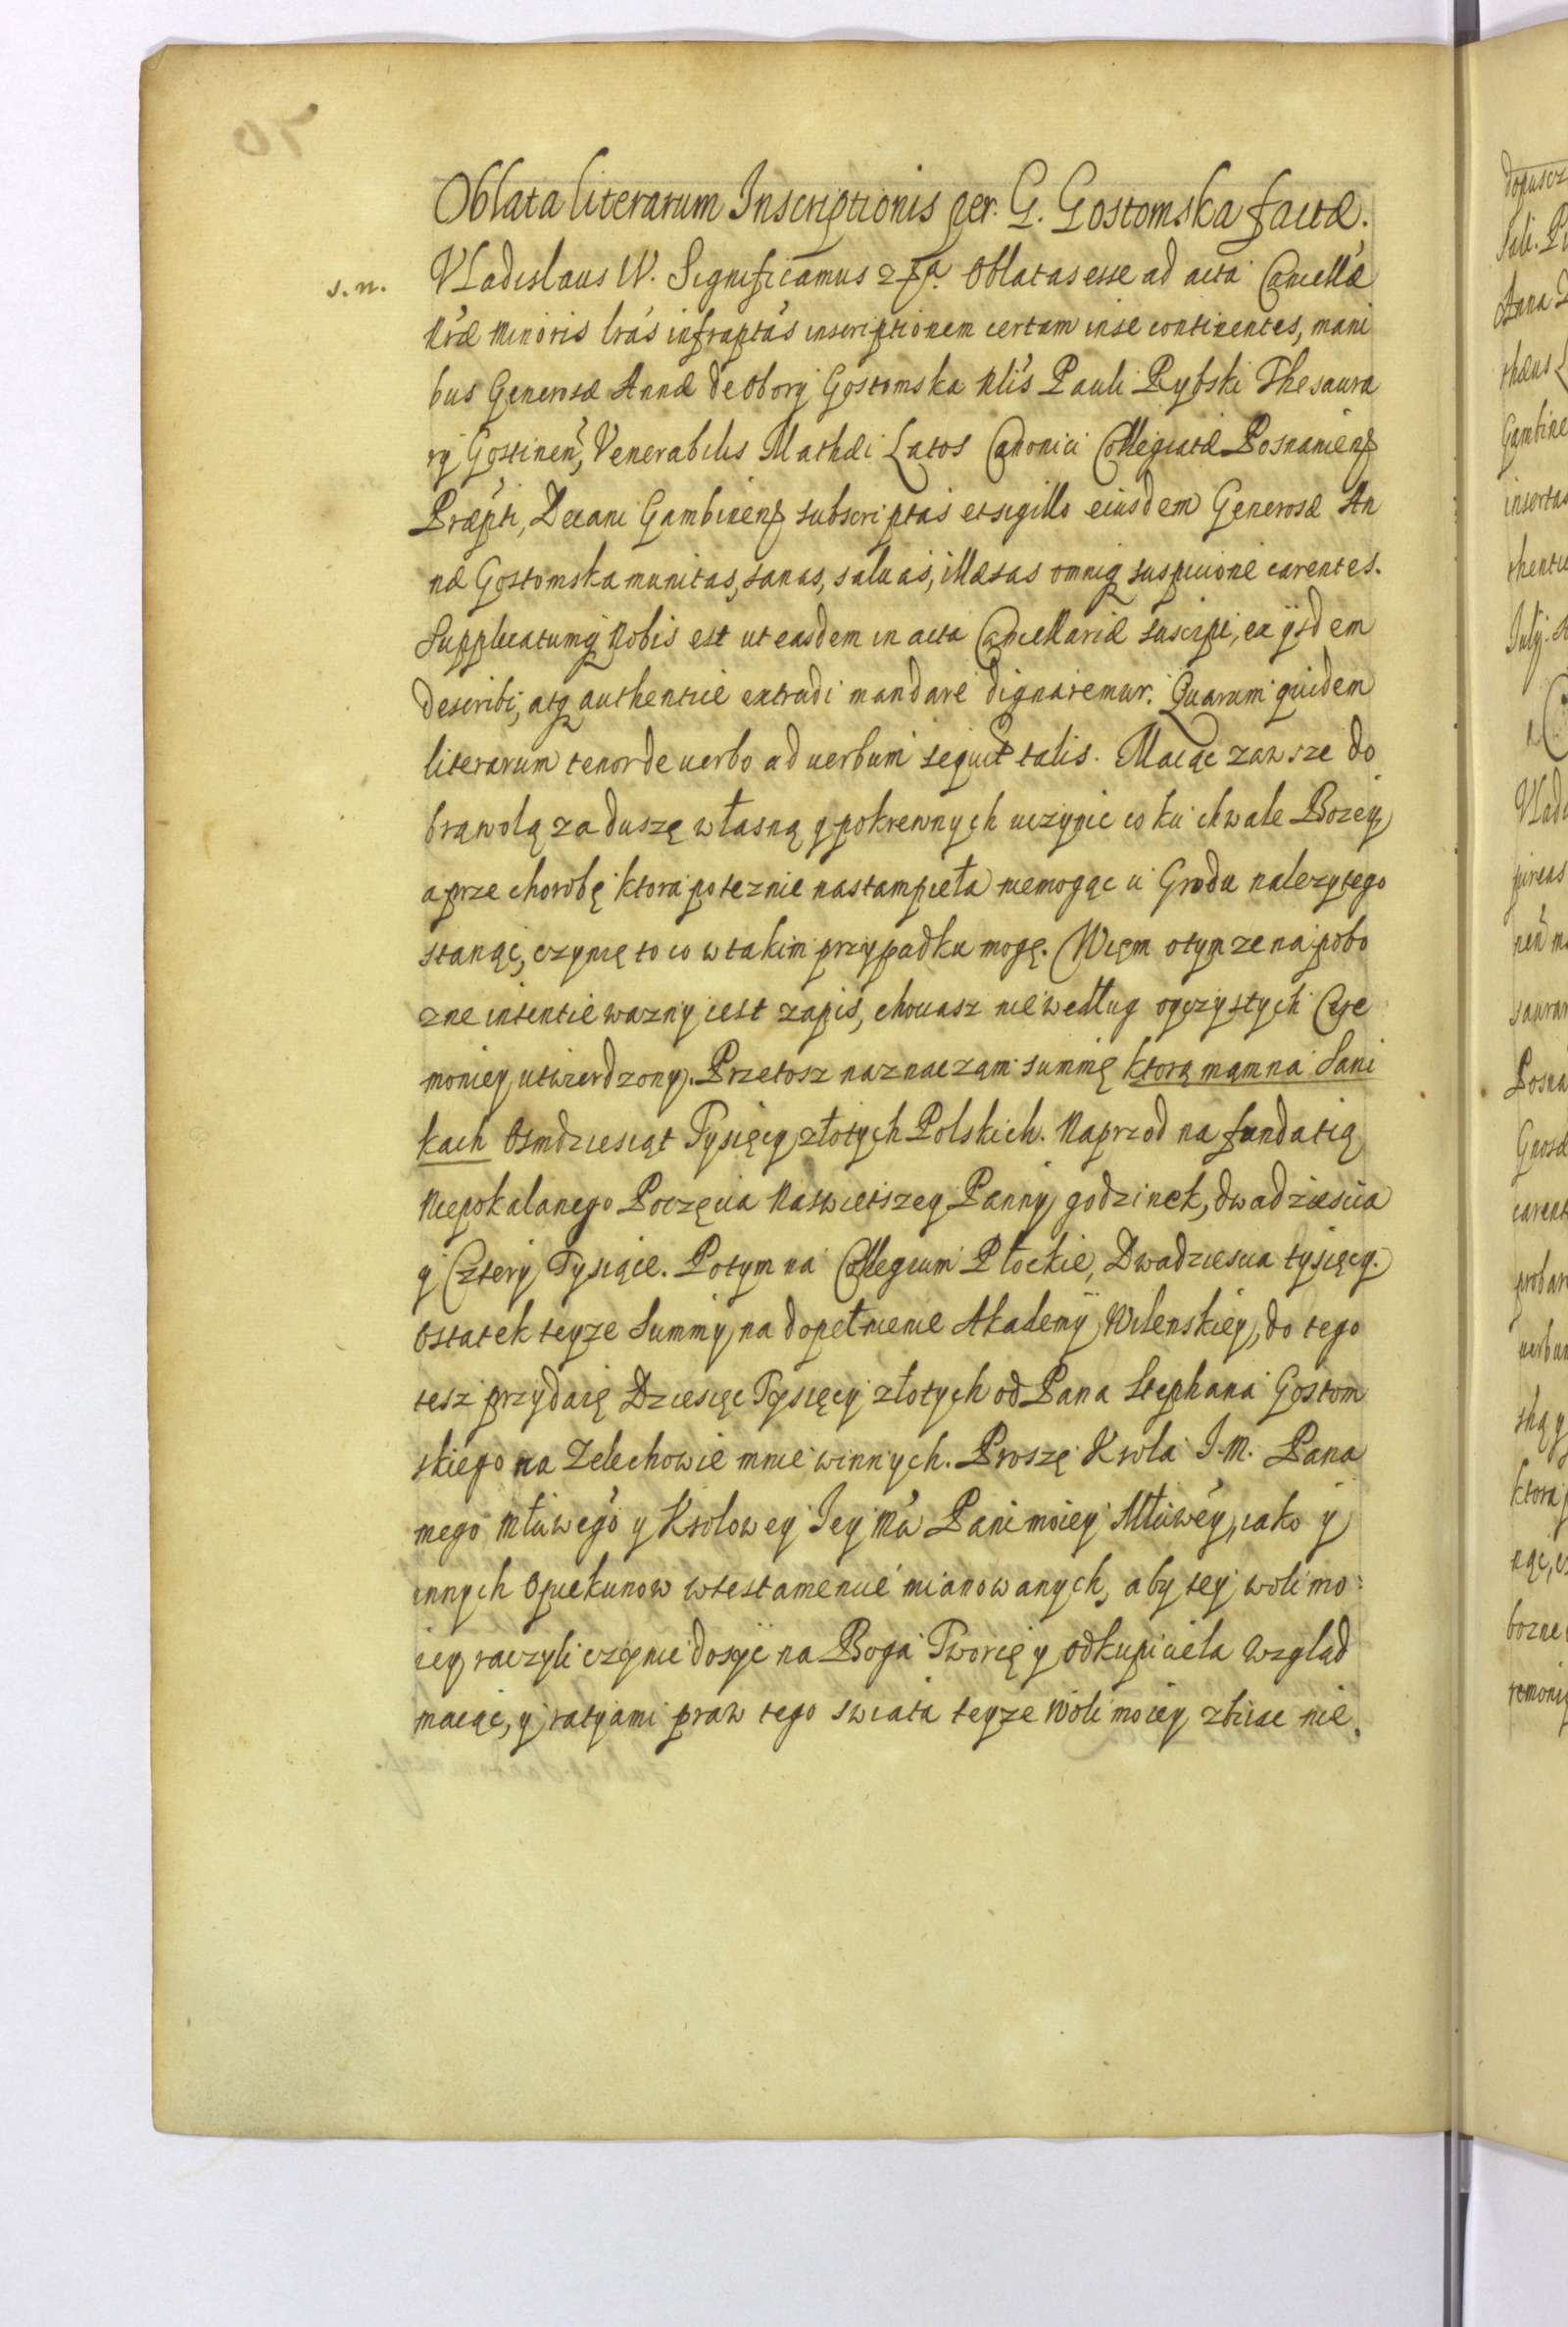 Oblata literarum Inscriptionis per G. Gostomska factæ.
s. n. Vladislaus IV. Significamus Oblatas esse ad acta Cancellæ
Nræ Minoris lras infraptas inscriptionem certam in se continentes, mani
bus Generosæ Annæ de Obory Gostomska Nlis Pauli Rybski Thesaura
rij Gostinen, Venerabilis Mathæi Latos Canonici Collegiatæ Posnaniens
Præpti, Decani Gambinens subscriptas et sigillo eiusdem Generosæ An
næ Gostomska munitas, sanas, saluas, illæsas omniq suspicione carentes.
Supplicatumq Nobis est ut easdem in acta Cancellariæ suscipi, ex ijsdem
describi, atq authentice extradi mandare dignaremur. Quarum quidem
literarum tenor de uerbo ad uerbum sequit talis. Maiąc zawsze do
brąwolą za duszę własną y pokrewnych uczynic co ku chwale Bozey,
a prze chorobę ktora poteznie nastampieła niemogąc u Grodu nalezytego
stanąc, czynię to co w takim przypadku mogę. Wiem o tym ze na pobo
zne intentie wazny iest zapis, chociasz nie według oyczystych Cere
moniey utwierdzony. Przetosz naznaczam summę ktorą mam na Sani
kach Osmdziesiąt Tysięcy złotych Polskich. Naprzod na fundatią
Niepokalanego Poczęcia Naswietszey Panny godzinek, dwadziescia
y Cztery Tysiące. Potym na Collegium Płockie, Dwadziescia tysięcy.
Ostatek teyze Summy na dopełnienie Akademij Wilenskiey, do tego
tesz przydaię Dziesięc Tysięcy złotych od Pana Stephana Gostom
skiego na Zelechowie mnie winnych. Proszę Krola I. M. Pana
mego Młiwego y Krolowey Iey Mci Pani moiey Młiwey, iako y
innych Opiekunow w testamencie mianowanych, aby tey woli mo:
iey raczyli czynic dosyc na Boga Tworcę y Odkupiciela wzgląd
maiąc, y ratyami praw tego swiata teyze Woli moiey zbiiac nie